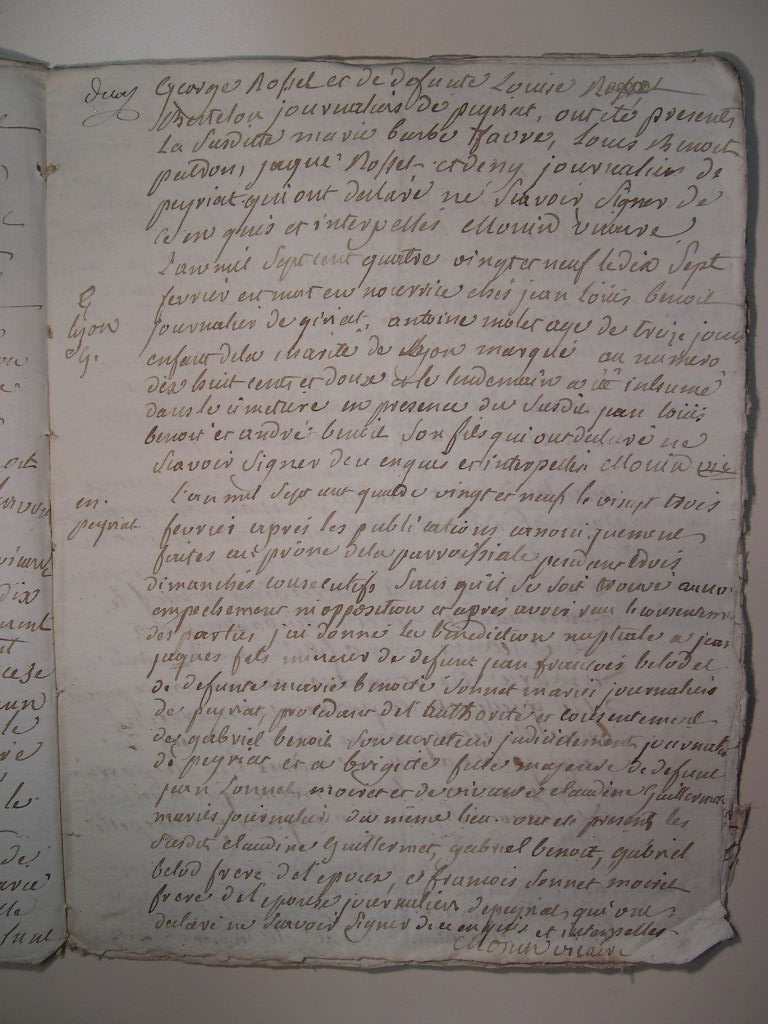 George Rossel et de defunte Louise
Bertelon journaliers de peyriat, ont été presents
La Susditte marie barbe favre, Louis Benoit
paldon, jaque Rossel et deny journaliers de
peyriat qui ont declaré ne Scavoir Signer de
ce enquis et interpellés Monin vicaire
L'an mil Sept cent quatre vingt et neuf le dix Sept
fevrier est mort en nourrice chés jean loüis benoit
journalier de giriat, antoine molet age de treize jours
Lyon
enfant de la charité de Lyon marqué au numero
dix huit cents et douze et le lendemain a été inhumé
dans le cimetiere en presence du Susdit jean loüis
benoit et andré benoit Son fils qui ont declaré ne
Scavoir Signer de ce enquis et interpellés Monin vic
en
peyriat
L'an mil Sept cent quatre vingt et neuf le vingt trois
fevrier après les publications canoniquement
faites au prône de la parroissiale pendant trois
dimanches consecutifs Sans qu'il Se Soit trouvé aucun
empechement ni opposition et après avoir reçu le consentement
des parties j'ai donné la benediction nuptiale a jean
jaques fils mineur de defunt jean francois belod et
de defunte marie benoite Sonnet mariés journaliers
de peyriat, procedant de l'authorité et consentement
de gabriel benoit Son curateur judiciel journalier
de peyriat et a brigide fille majeure de defunt
jean Sonnet moiret et de vivante claudine Guillermet
mariés journaliers du même lieu. ont été presents les
Susdits claudine Guillermet, gabriel benoit, gabriel
belod frere de l'epoux, et francois Sonnet moiret
frere de l'epouse journaliers de peyriat qui ont
declaré ne Scavoir Signer de ce enquis et interpellés
Monin vicaire